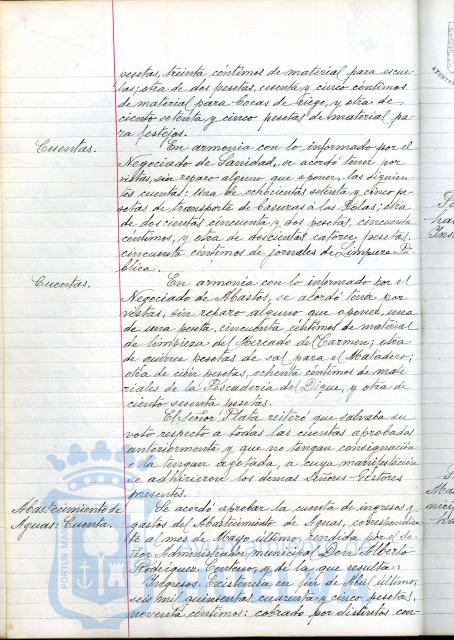 pesetas, treinta céntimos de material para escue-
las; otra de dos pesetas, sesenta y cinco céntimos
de material para bocas de riego, y otra de
ciento setenta y cinco pesetas de material pa-
ra festejos.
Cuentas.
En armonía con lo informado por el
Negociado de Sanidad, se acordó tener por
vistas, sin reparo alguno que oponer, las siguien-
tes cuentas: Una de ochocientas setenta y cinco pe-
setas de transporte de basuras a las Bolas; otra
de doscientas cincuenta y dos pesetas, cincuenta
céntimos, y otra de doscientas catorce pesetas,
cincuenta céntimos de jornales de Limpieza Pú-
blica.
Cuentas.
En armonía con lo informado por el
Negociado de Abastos, se acordó tener por
vistas, sin reparo alguno que oponer, una
de una peseta, cincuenta céntimos de material
de limpieza del Mercado del Carmen; otra
de quince pesetas de sal para el Matadero;
otra de cien pesetas, ochenta céntimos de mate-
riales de la Pescadería del Dique, y otra de
ciento sesenta pesetas.
El Señor Plata reiteró que salvaba su
voto respecto a todas las cuentas aprobadas
anteriormente y que no tengan consignación
o la tengan agotada, a cuya manifestación
se adhirieron los demás Señores Gestores
presentes.
Abastecimiento de
Aguas: Cuenta.
Se acordó aprobar la cuenta de ingresos y
gastos del Abastecimiento de Aguas, correspondien-
te al mes de Mayo último, rendida por el Se-
ñor Administrador municipal Don Alberto
Rodríguez Centeno, y de la que resulta:
Ingresos. Existencia en fin de Abril último,
seis mil quinientas cuarenta y cinco pesetas,
noventa céntimos: cobrado por distintos con-